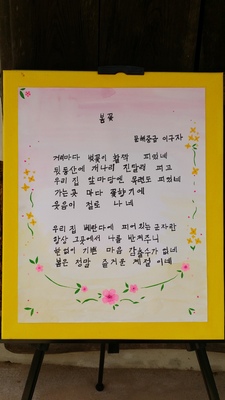 봄꽃
문해중급 이구자
거리마다 벚꽃이 활짝 피었네
뒷동산에 개나리 진달래 피고
우리 집 앞마당엔 목련도 피었네
가는 곳 마다 꽃향기에
웃음이 절로 나네
우리 집 베란다에 피어있는 군자란
항상 그곳에서 나를 반겨주니
한없이 기쁜 마음 감출수가 없네
봄은 정말 즐거운 계절 이네